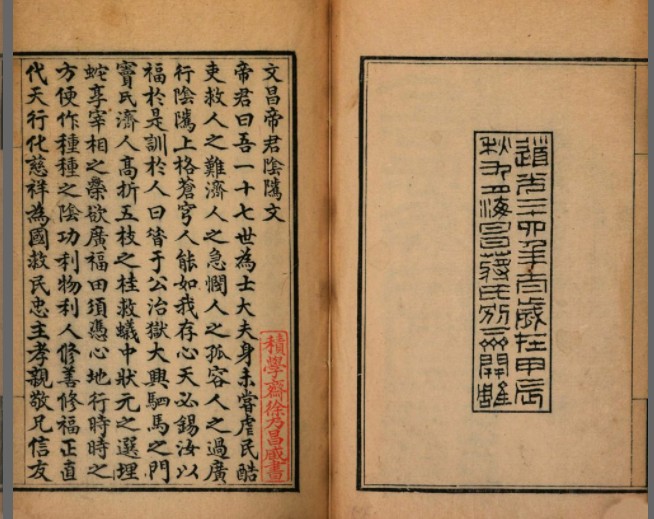 道光二十四年太歲在甲辰
秋九月海昌蔣氏別下齋開雕
文昌帝君陰騭文
帝君曰吾一十七世為士大夫身未嘗虐民酷
吏救人之難濟人之急憫人之孤容人之過廣
行陰騭上格蒼穹人能如我存心天必錫汝以
福於是訓於人曰昔于公治獄大興駟馬之門
竇氏濟人高折五枝之桂救蟻中狀元之選埋
蛇享宰相之榮欲廣福田須憑心地行時時之
方便作種種之陰功利物利人修善修福正直
代天行化慈祥為國救民忠主孝親敬兄信友
積學齋徐乃昌藏書